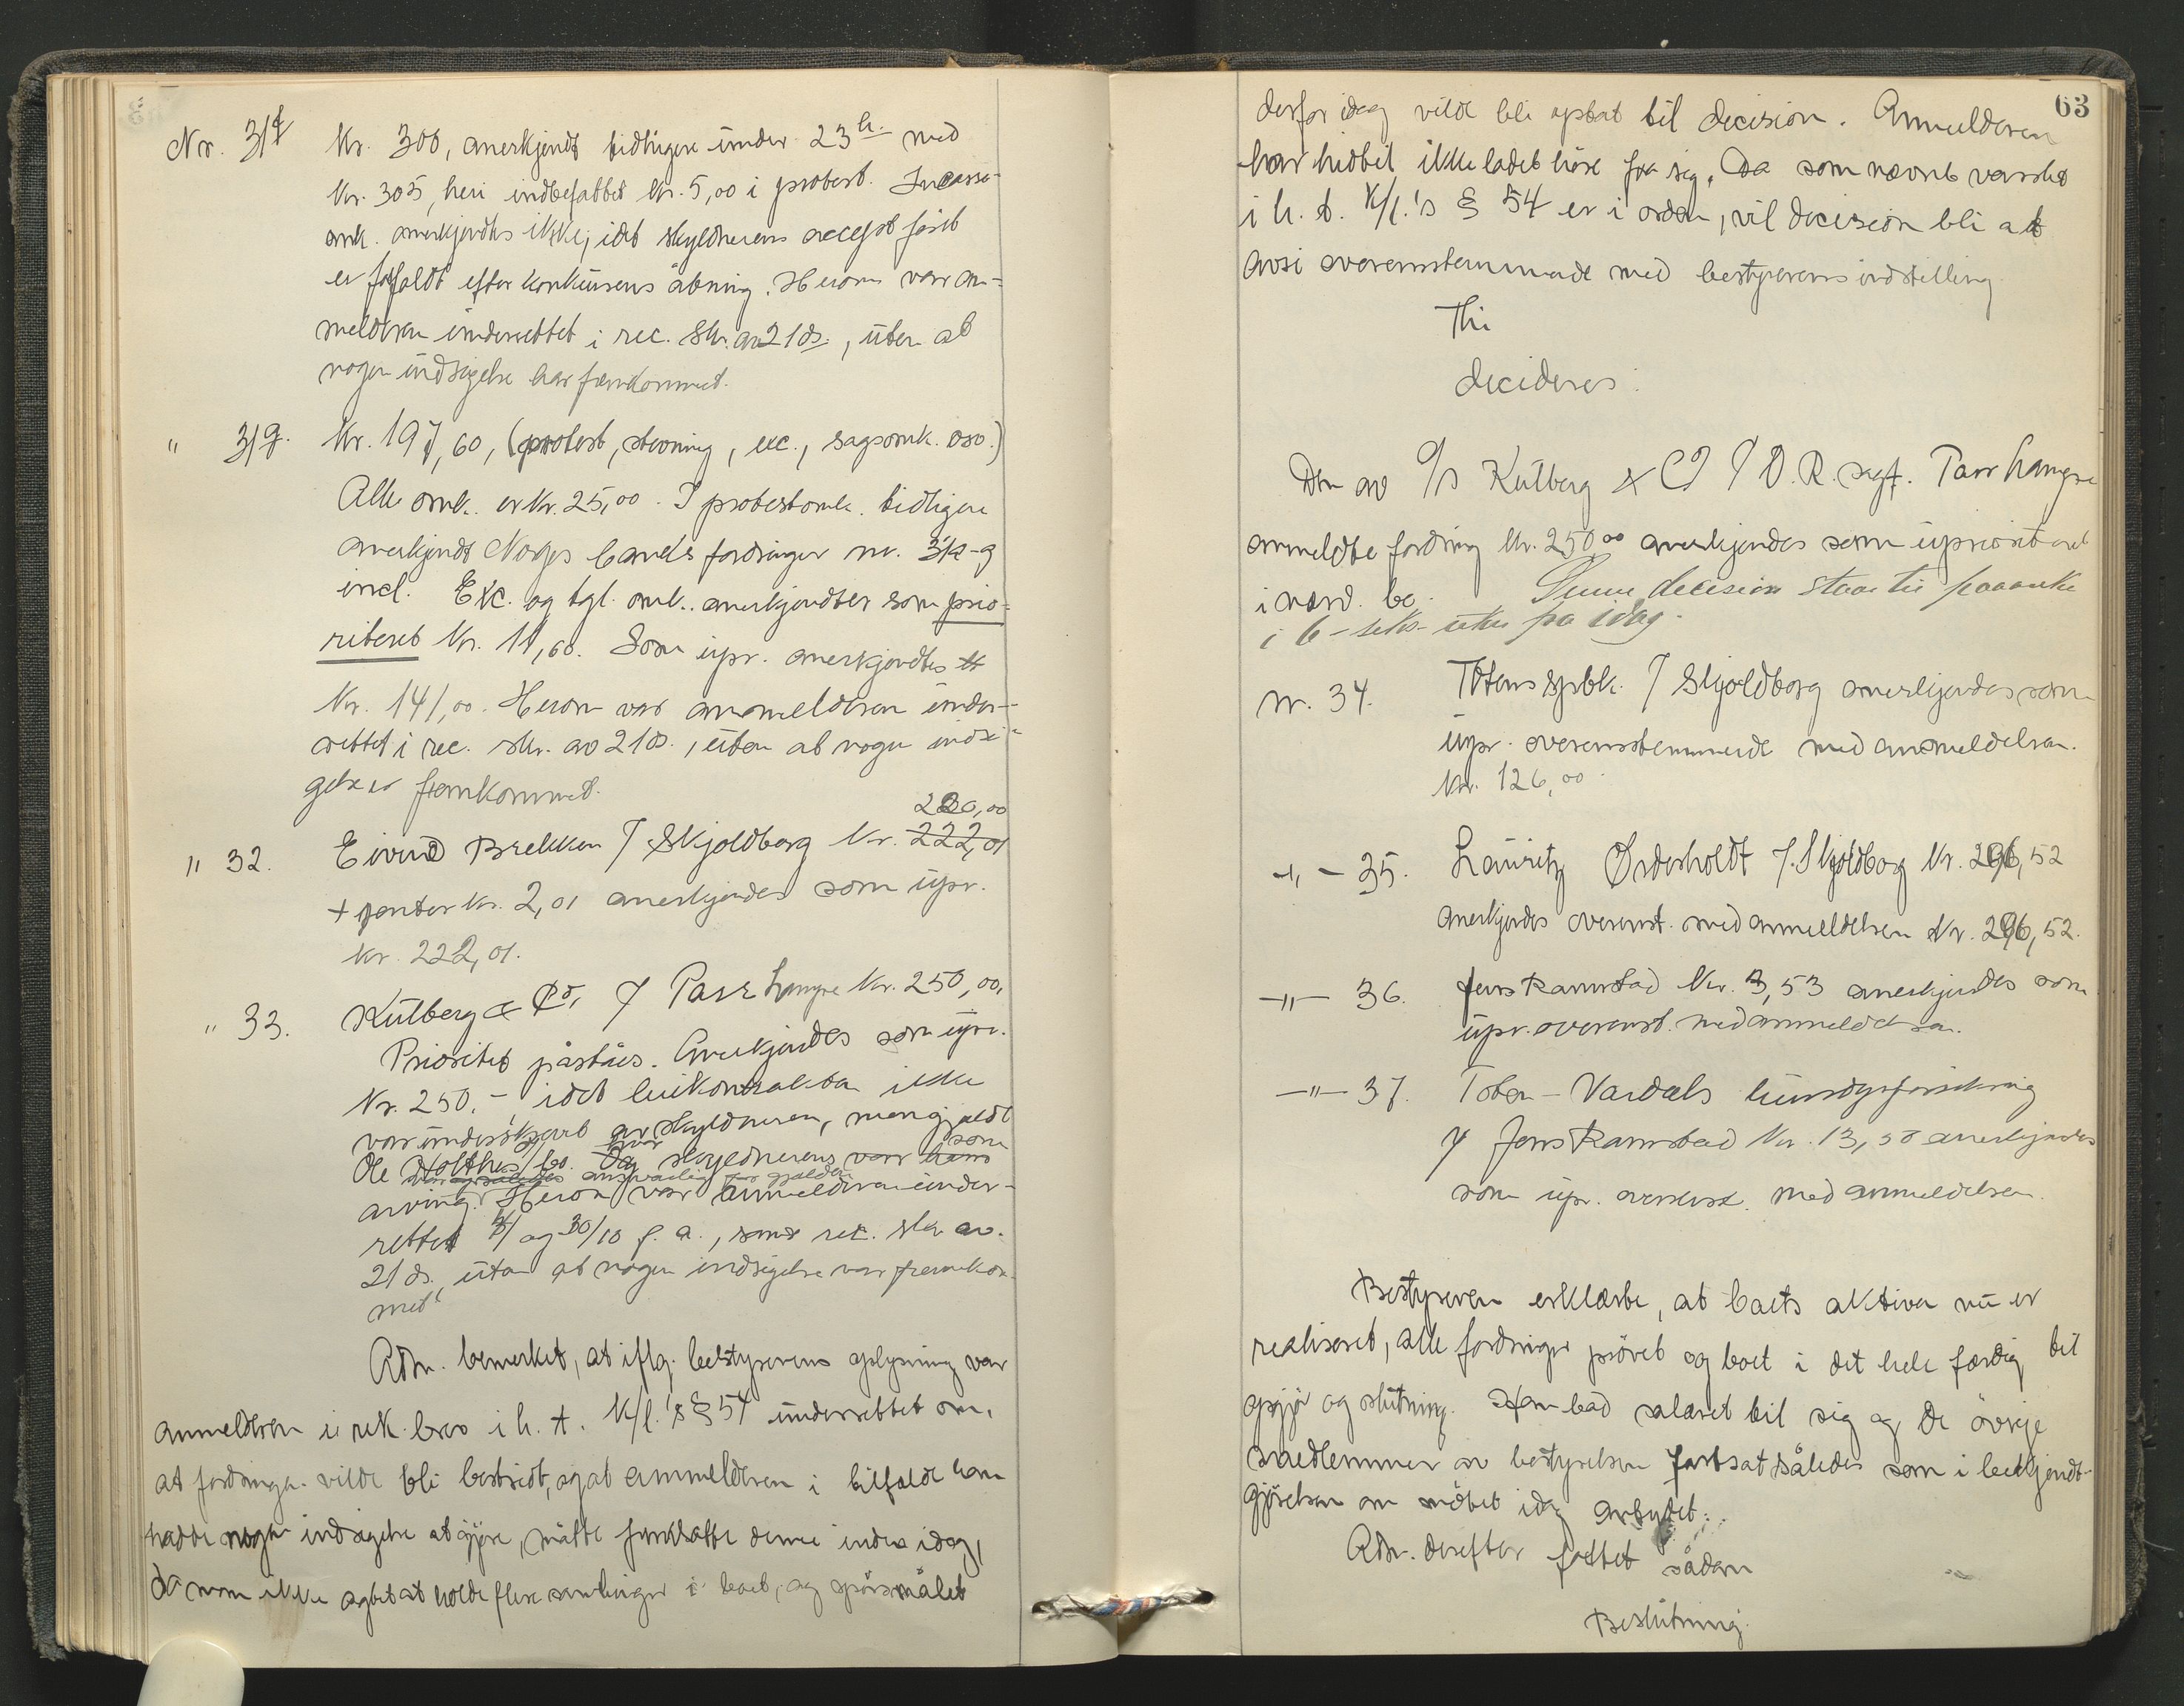 Nr. 31f Kr. 300, anerkjendt tidligere under 23 h. med
Kr. 305, heri indbefattet kr. 5,00 i protest. Incasso-
omk. anerkjendtes ikke, idet skyldnerens accept først
er forfaldt efter konkursens åbning. Herom var an-
melderen underrettet i rec. skr. av 21 ds., uten at
nogen indsigelse har fremkommet.
" 31g. Kr. 197,60, (protest, stevning, exc., sagsomk. osv.)
Alle omk. er kr. 25,00. I protestomk. tidligere
anerkjendt Norges banks fordringer nr. 31a-g
incl. Exc. og tgl. omk. anerkjendtes som prio-
riteret Kr. 11,60. Som upr. anerkjendtes
Kr. 141,00. Herom var anmelderen under-
rettet i rec. skr. av 21 ds., uten at nogen indsi-
gelse er fremkommet.
220,00
" 32. Eivind Brekken / Skjoldborg Kr. 222,01
+ renter kr. 2,01 anerkjendes som upr.
kr. 222,01.
" 33. Kulberg & Co, / Parr Langre kr. 250,00,
Prioritet påståes. Anerkjendes som upr.
Kr. 250.- idet leiekontrakten ikke
var underskrevet av skyldneren, men gjaldt
Ole Holthes bo. skyldnerens var hans som
var ansvarlig for gjælden
arving. Herom var anmelderen under-
rettet og 30/10 f. a., samt rec. skr av.
21 ds., uten at nogen indsigelse var fremkom-
met.
Adm. bemerket, at iflg. bestyrerens oplysning var
anmelderen i rek. brev i h. t. K/l.'s § 54 underrettet om,
at fordringen vilde bli bestridt, og at anmelderen i tilfælde han
hadde nogen indsigelse at gjøre, måtte fremsætte denne inden idag,
da man ikke agtet at holde flere samlinger i boet, og spørsmålet
63
derfor idag vilde bli optat til decision. Anmelderen
har hidtil ikke ladet høre fra sig. Da som nævnt varslet
i h. t. K/l.'s § 54 er i orden, vil decision bli at
avsi overensstemmende med bestyrerens indstilling
Thi
decideres:
Den av A/s Kulberg & Co / O.R. sagf. Parr Langre
anmeldte fordring kr. 250 00 anerkjendes som uprioriteret
i nærv. bo. Denne decision staar til paaanke
i 6 - seks - uker fra idag.
Nr. 34. Totens spbk. / Skjoldborg anerkjendes som
upr. overensstemmende med anmeldelsen.
Kr. 126,00
-"- 35. Lauritz Ørderholdt / Skjoldborg Kr. 296,52
anerkjendes overenst. med anmeldelsen Kr. 296,52.
-"- 36. Jens Ramstad Kr. 3,53 anerkjendes som
upr. overenst. med anmeldelsen.
-"- 37. Toten - Vardals husdyrforsikring
/ Jens Ramstad Kr. 13,50 anerkjendes
som upr. overenst. med anmeldelsen.
Bestyreren erklærte, at boets aktiva nu er
realiseret, alle fordringer prøvet og boet i det hele færdig til
opgjør og slutning. Han bad salæret til sig og de øvrige
medlemmer av bestyrelsen fastsat således som i bekjendt-
gjørelsen om møtet idag antydet.
Adm. derefter fattet sådan
Beslutning.